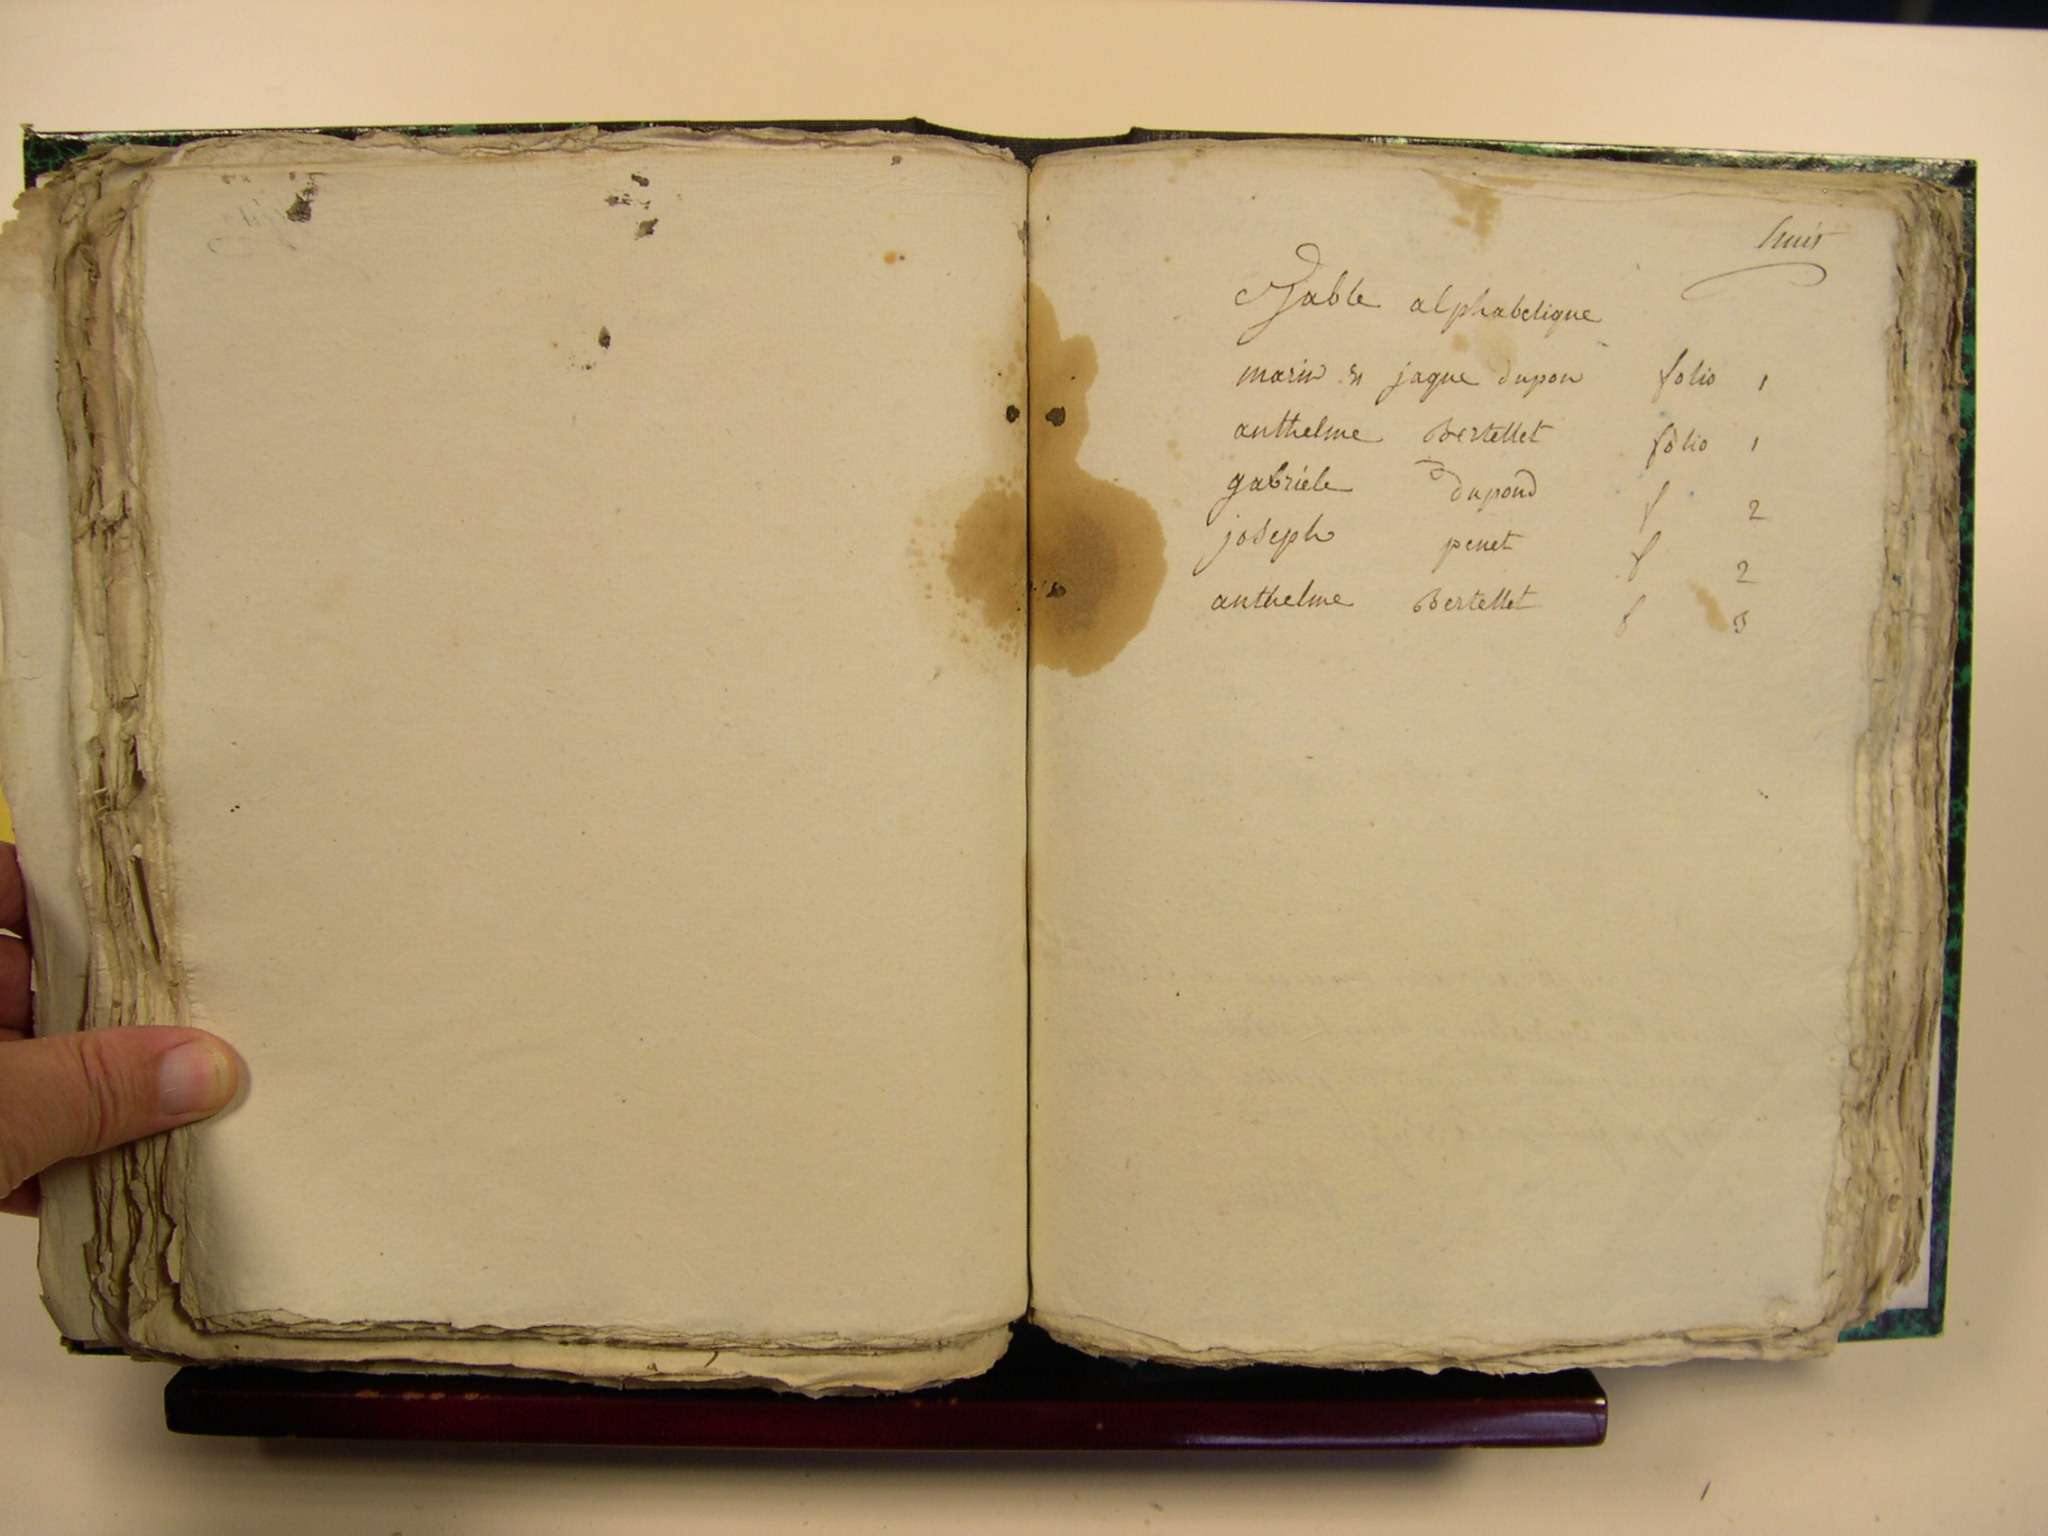 huit
Table alphabetique
marin et jaque dupon folio 1
anthelme Bertellet folio 1
gabriele dupond f 2
joseph penet f 2
anthelme Bertellet f 3